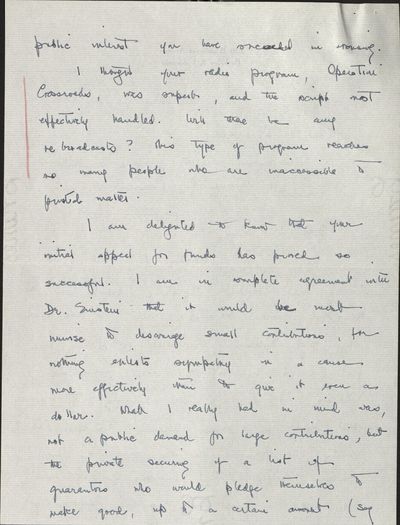 public interest you have succeeded in arousing.
I thought your radio program, Operation
Crossroads, was superb, and the script most
effectively handled. Will there be any
rebroadcasts? This type of program reaches
so many people who are inaccessible to
printed matter.
I am delighted to know that your
initial appeal for funds has proved so
successful. I am in complete agreement with
Dr. Einstein that it would be most
unwise to discourage small contributions, for
nothing enlists sympathy in a cause
more effectively than to give it even a
dollar. What I really had in mind was,
not a public demand for large contributions, but
the private securing of a list of
guarantors who would pledge themselves to
make good, up to a certain amount (say